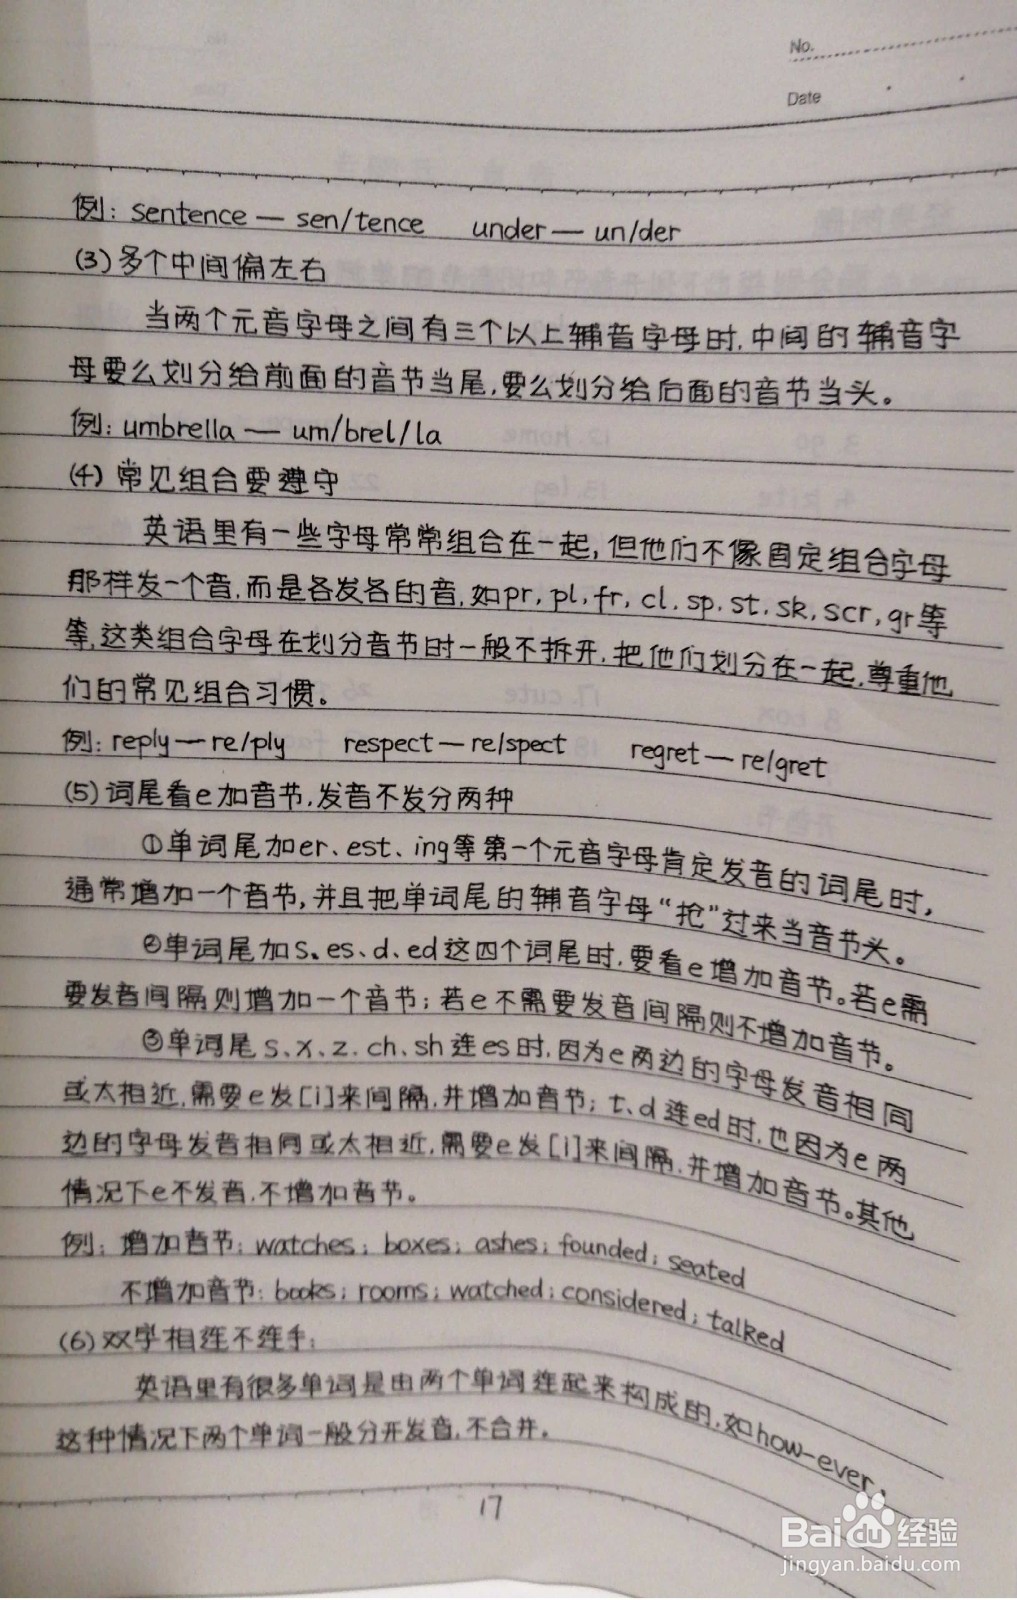 No.
Date
例: sentence — sen/tence under — un/der
(3)多个中间偏左右
当两个元音字母之间有三个以上辅音字母时,中间的辅音字
母要么划分给前面的音节当尾,要么划分给后面的音节当头。
例: umbrella — um/brel/la
(4)常见组合要遵守
英语里有一些字母常常组合在一起,但他们不像固定组合字母
那样发一个音,而是各发各的音,如pr, pl, fr, cl, sp, st, sk, scr, gr等
等,这类组合字母在划分音节时一般不拆开,把他们划分在一起,尊重他
们的常见组合习惯。
例: reply — re/ply respect — re/spect regret — re/gret
(5)词尾看e加音节,发音不发分两种
①单词尾加er、est、ing等第一个元音字母肯定发音的词尾时,
通常增加一个音节,并且把单词尾的辅音字母“抢”过来当音节头。
②单词尾加s、es、d、ed这四个词尾时,要看e增加音节。若e需
要发音间隔则增加一个音节;若e不需要发音间隔则不增加音节。
③单词尾s、x、z、ch、sh连es时,因为e两边的字母发音相同
或太相近,需要e发[i]来间隔,并增加音节;t、d连ed时,也因为e两
边的字母发音相同或太相近,需要e发[i]来间隔,并增加音节。其他
情况下e不发音,不增加音节。
例:增加音节: watches; boxes; ashes; founded; seated
不增加音节: books; rooms; watched; considered; talked
(6)双字相连不连手:
英语里有很多单词是由两个单词连起来构成的,如how-ever,
这种情况下两个单词一般分开发音,不合并。
17
Baidu经验
jingyan.baidu.com